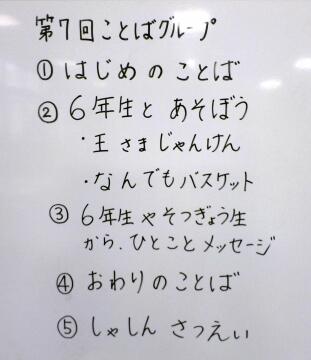 第7回ことばグループ
① はじめの ことば
② 6年生と あそぼう
・王さまじゃんけん
・なんでもバスケット
③ 6年生やそつぎょう生
から、ひとことメッセージ
④ おわりのことば
⑤ しゃしん さつえい